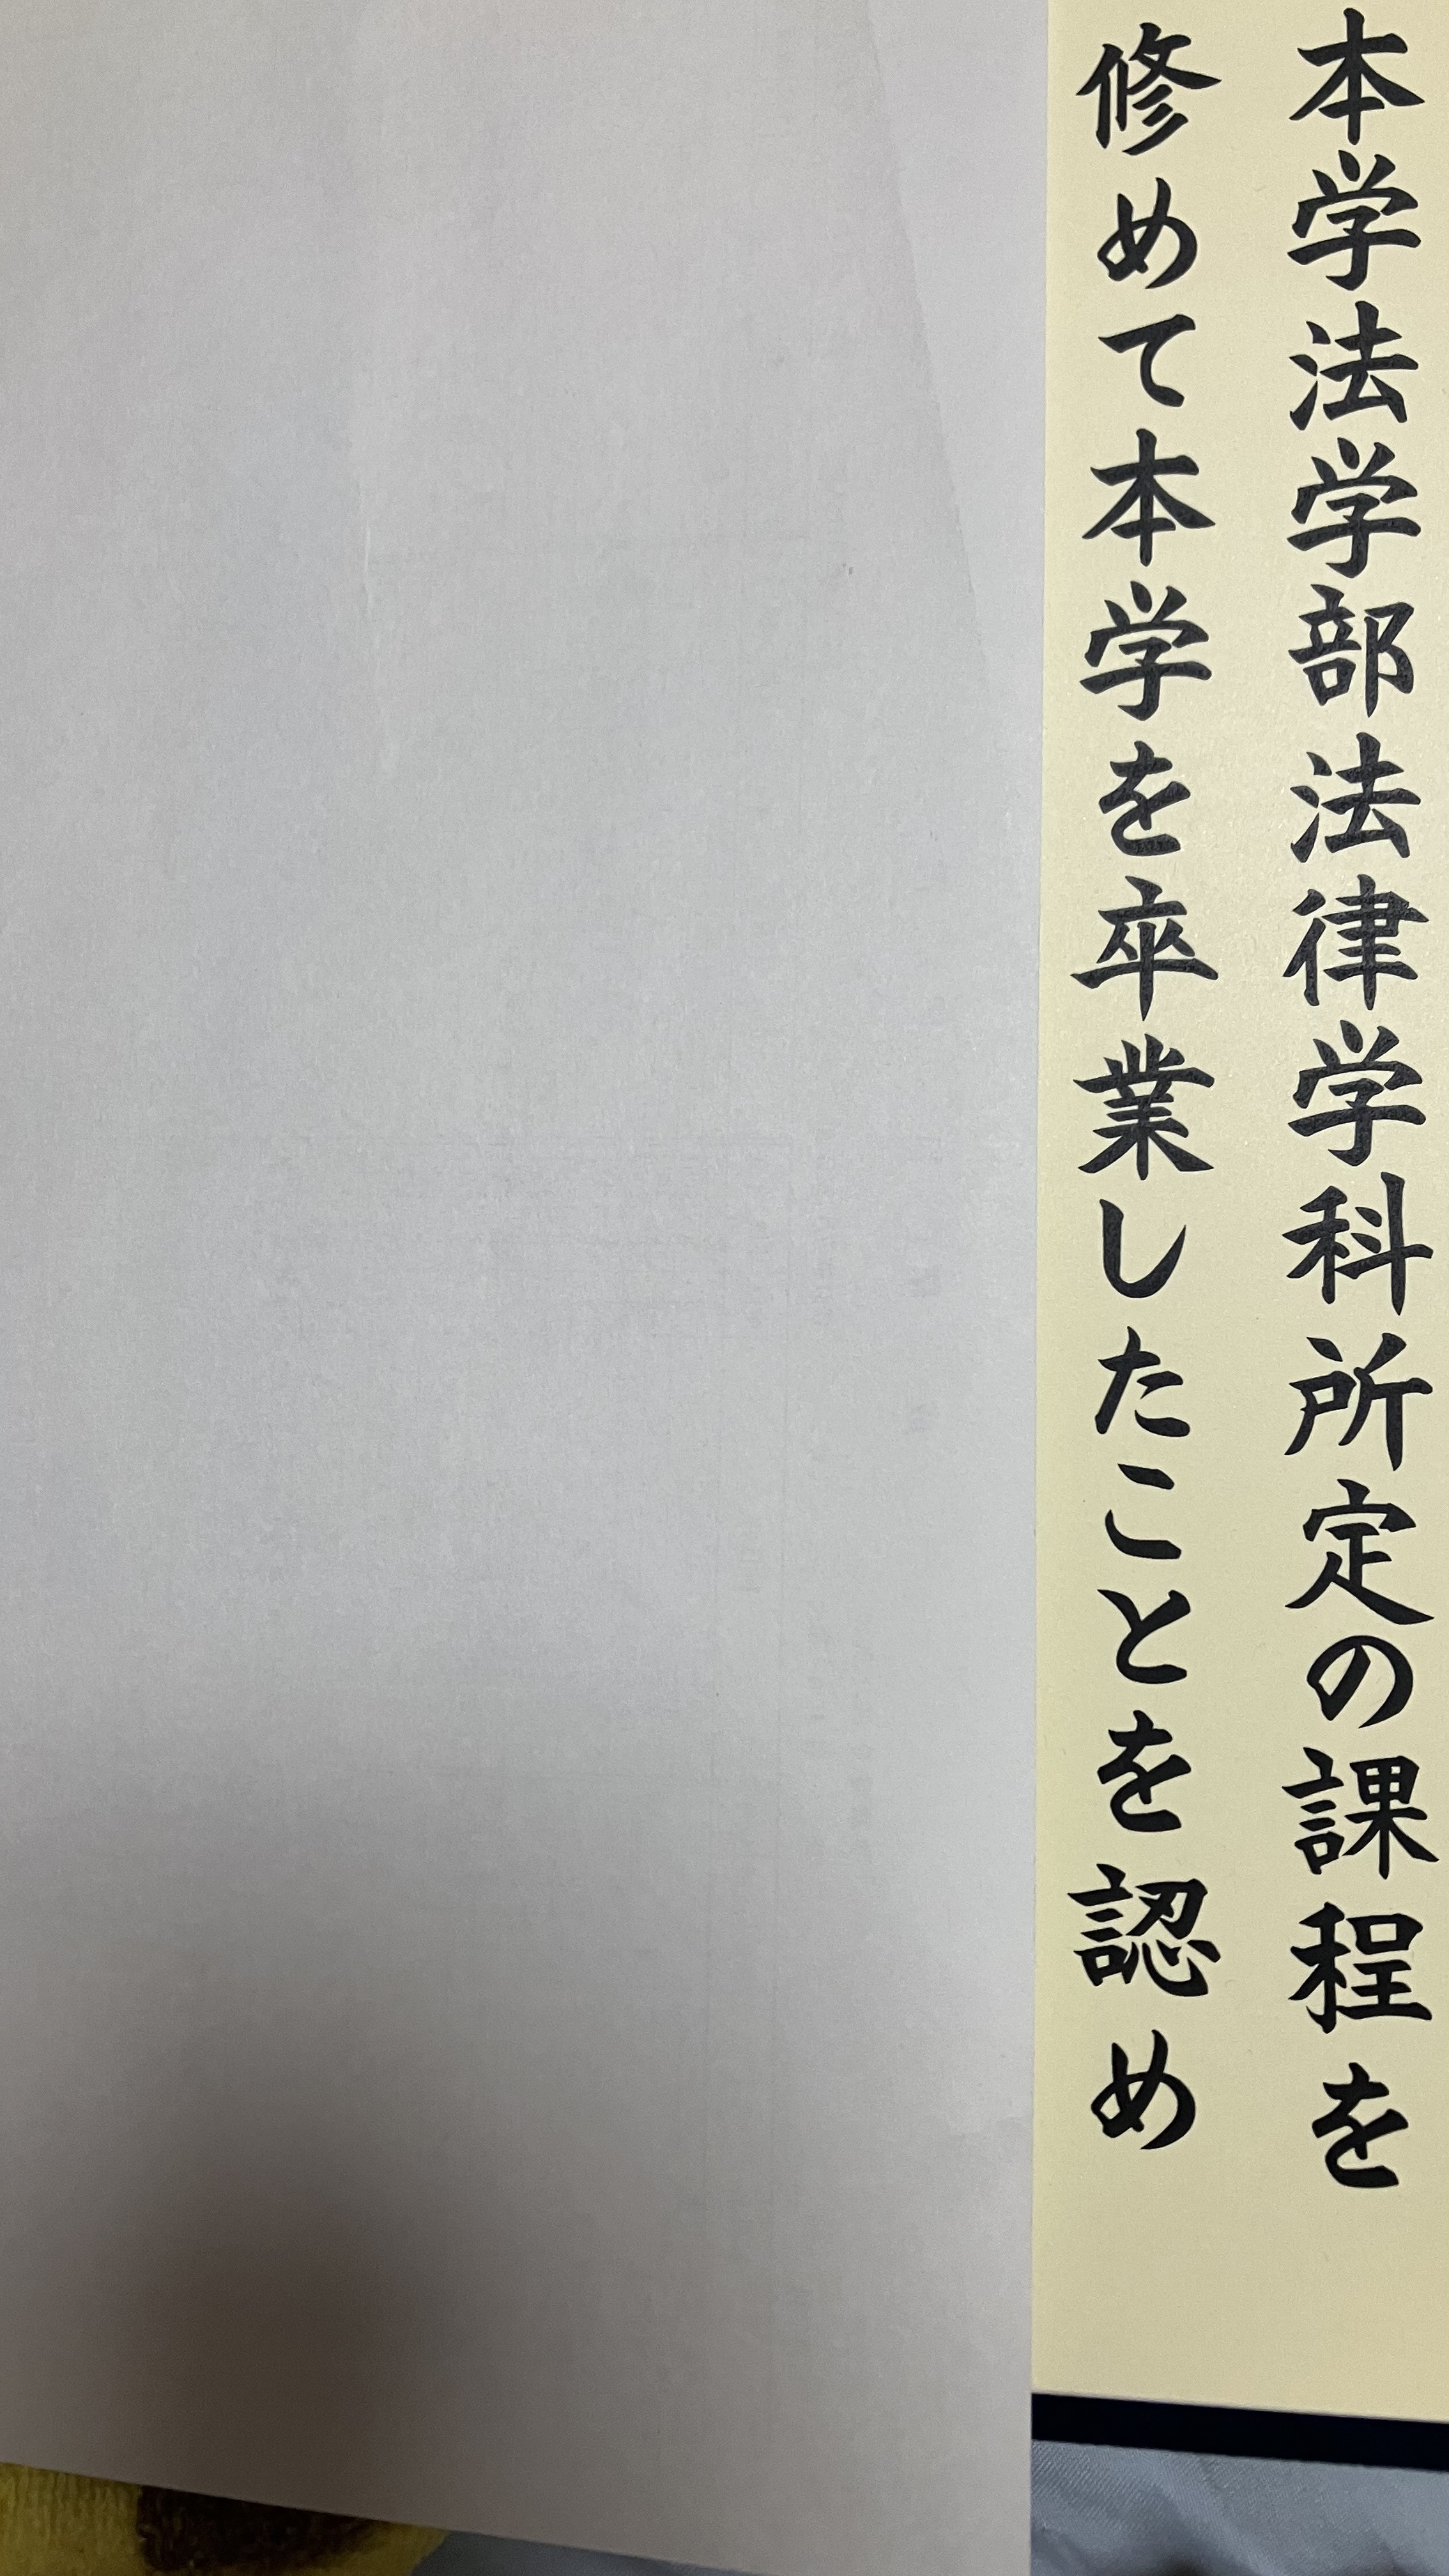 本学法学部法律学科所定の課程を
修めて本学を卒業したことを認め